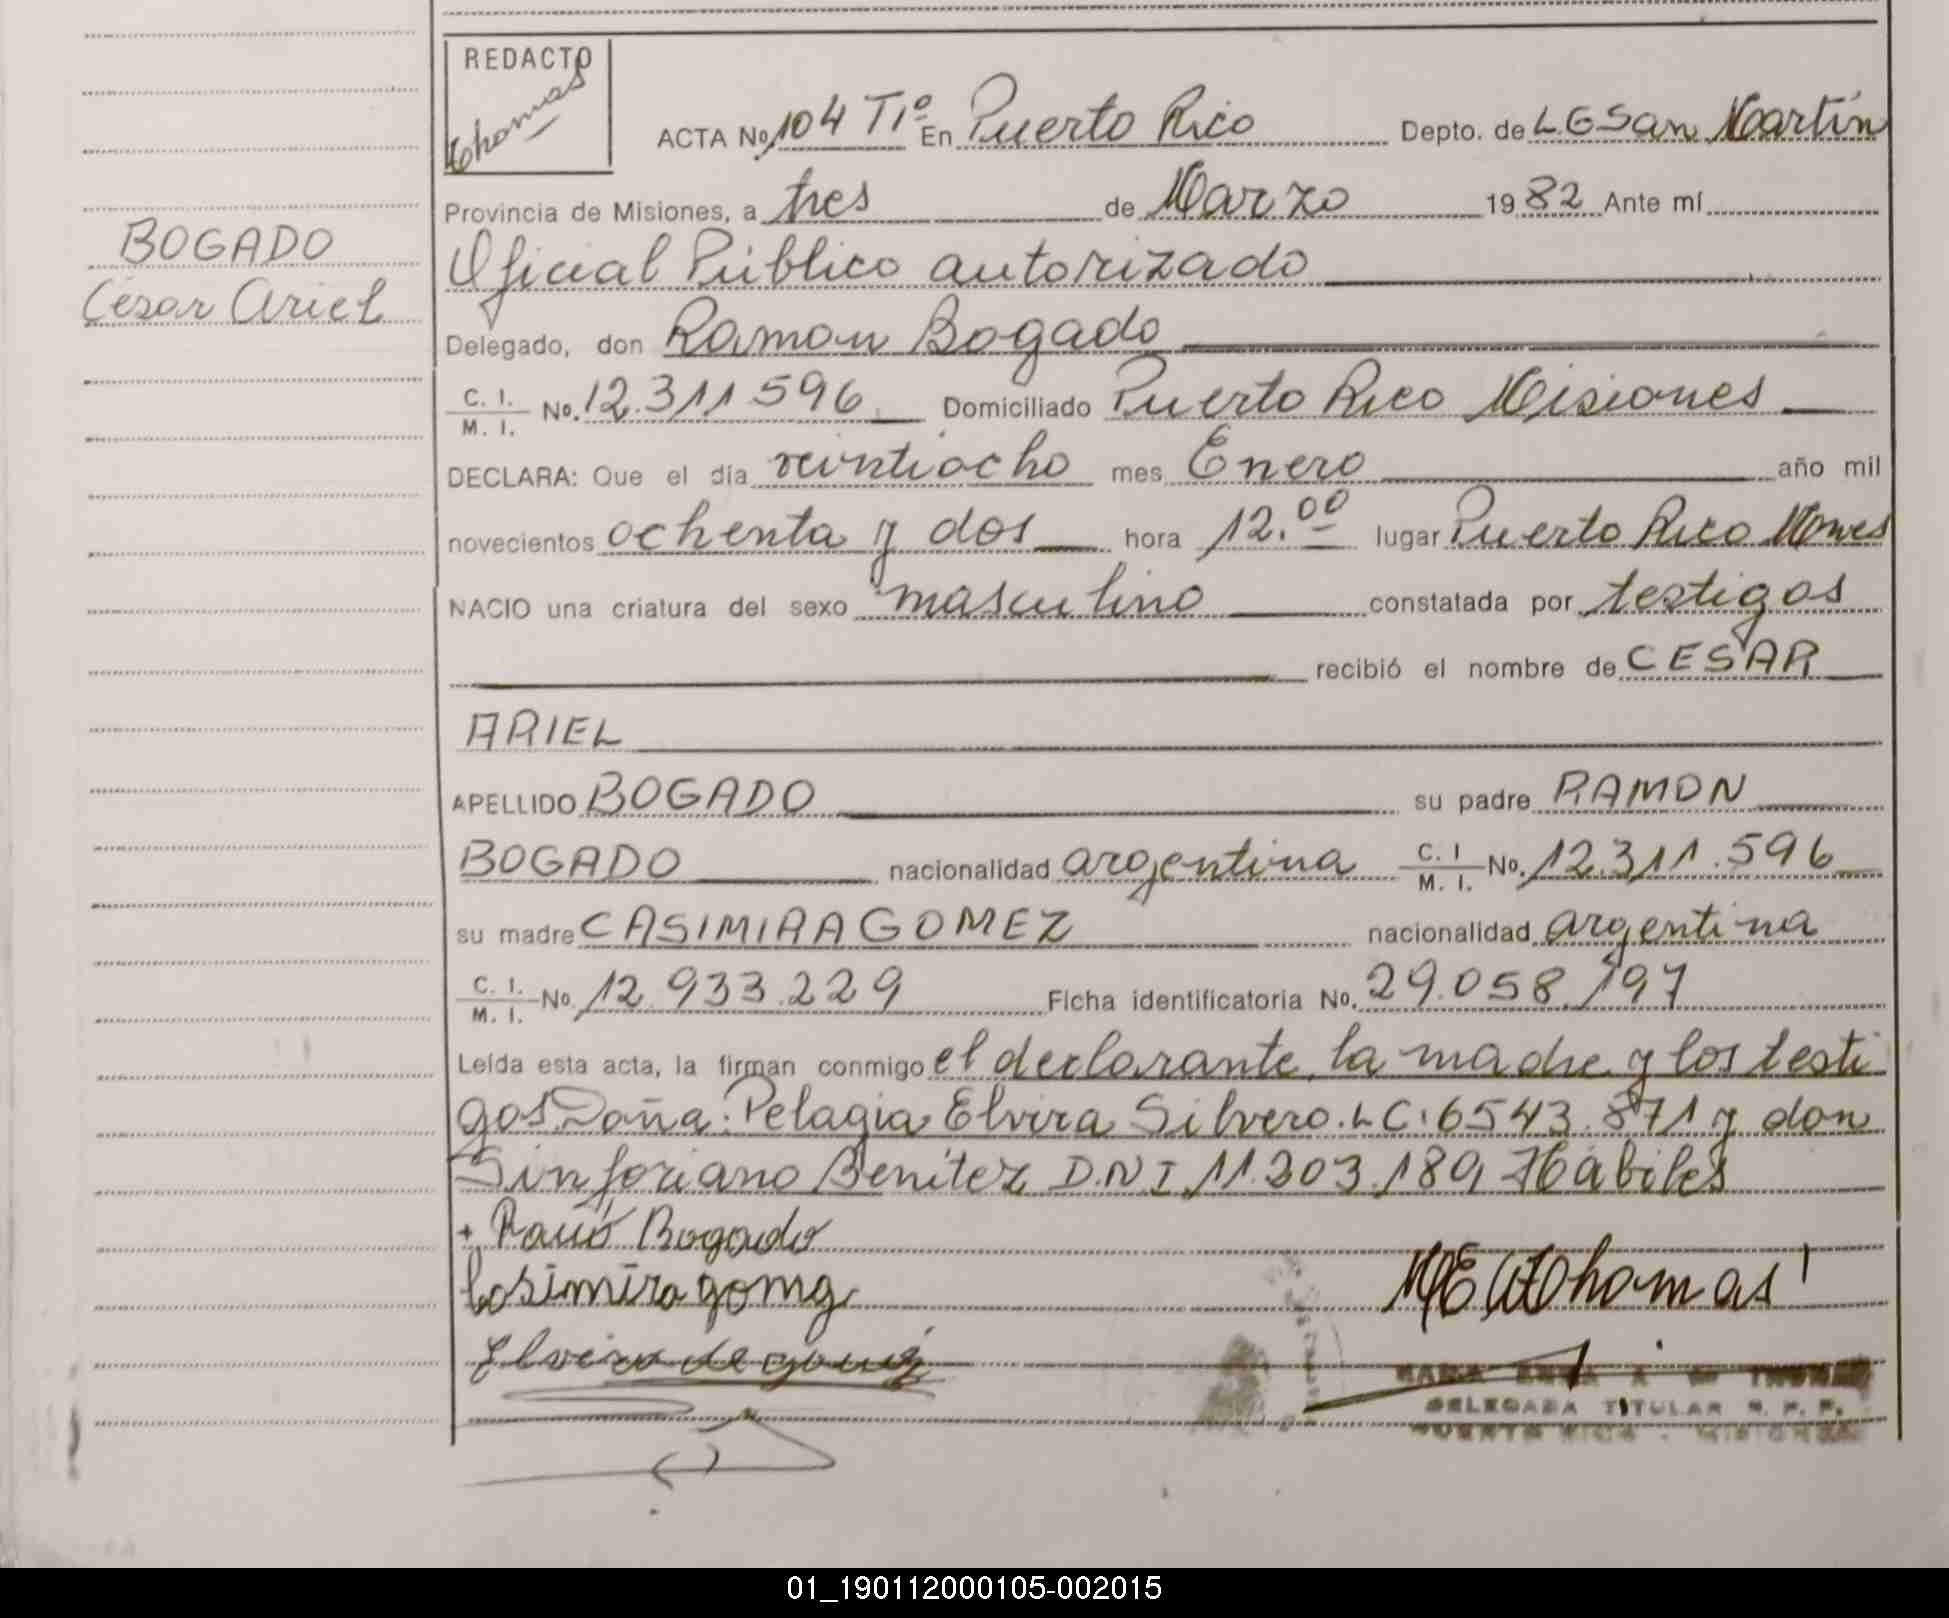 REDACTO
Thomas
ACTA No 104 T1º En Puerto Rico Depto. de L.G San Martín
Provincia de Misiones, a tres de Marzo 1982 Ante mí
Oficial Público autorizado
Delegado, don Ramon Bogado
C. I. / M. I. No. 12.311.596 Domiciliado Puerto Rico Misiones
DECLARA: Que el día veintiocho mes Enero año mil
novecientos ochenta y dos hora 12.00 lugar Puerto Rico Mnes
NACIO una criatura del sexo masculino constatada por testigos
recibió el nombre de CESAR
ARIEL
APELLIDO BOGADO su padre RAMON
BOGADO nacionalidad argentina C. I / M. I. No. 12.311.596
su madre CASIMIRA GOMEZ nacionalidad argentina
C. I. / M. I. No. 12.933.229 Ficha identificatoria No. 29.058.197
Leída esta acta, la firman conmigo el declarante, la madre y los testi
gos Doña: Pelagia Elvira Silvero. LC: 6543.871 y don
Sinforiano Benítez D.N.I 11.303.189 Hábiles
+ Bogado
Casimira gomez
Elvira de
Thomas
DELEGADA TITULAR R. P. P.
PUERTO RICO - MISIONES
BOGADO
César Ariel
01_190112000105-002015